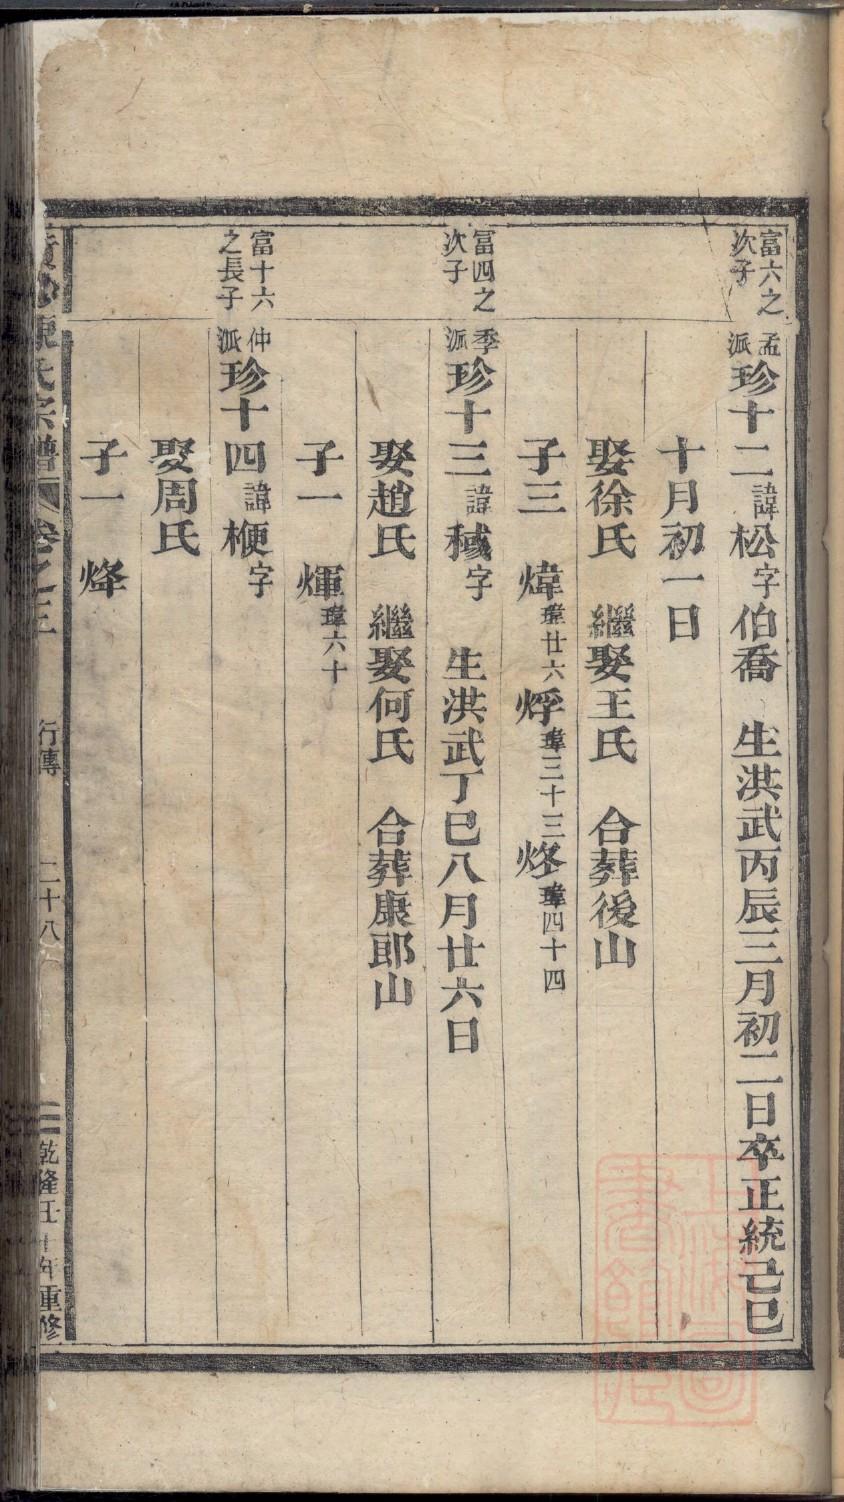 富六之次子
孟派珍十二諱松字伯喬 生洪武丙辰三月初二日卒正統己巳
十月初一日
娶徐氏 繼娶王氏 合葬後山
子三 煒瑋廿六 烰瑋三十三 烙瑋四十四
富四之次子
季派珍十三諱穢字 生洪武丁巳八月廿六日
娶趙氏 繼娶何氏 合葬康郎山
子一 煇瑋六十
富十六之長子
仲派珍十四諱楩字
娶周氏
子一 烽
陳氏宗譜 卷之三 行傳 二十八 乾隆五十年重修
上海圖書館藏